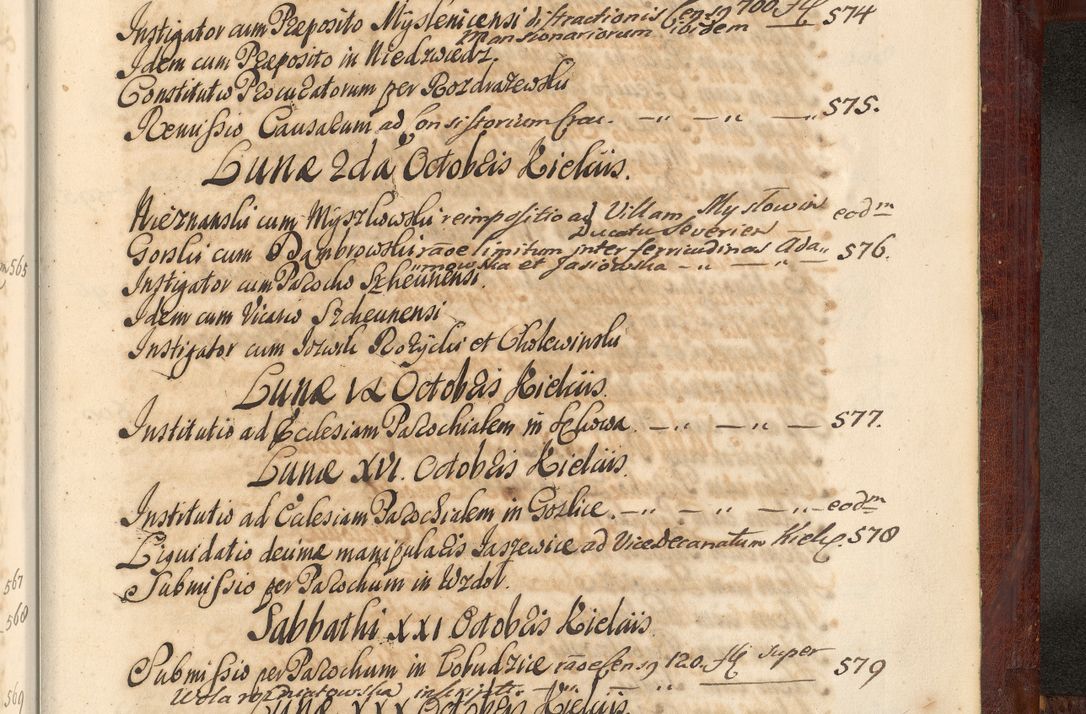 Instigator cum Præposito Myslenicensi distractionis Censq 700. fl 574
Mansionariorum ibidem
Idem cum Præposito in Niedzwiedz.
Constitutio Procuratorum per Rozdrazewski
Remissio Causarum ad Consistorium Crac. — „ — „ — „ 575.
Lunæ 2da Octobris Kielciis.
Nieznanski cum Myszkowski reimpositio ad Villam Mystowin eodm
Ducatus Severien —
Gorski cum Dąmbrowski raōe limitum inter ferricudinas Ada„ 576.
mowska et Jasiowska — „ — „ —
Instigator cum Parocho Szheunensi.
Idem cum Vicario Szcheunensi
Instigator cum Jozwik Rozycki et Cholewinski
Lunæ IX Octobris Kielciis.
Institutio ad Ecclesiam Parochialem in Lelowa. — „ — „ — 577.
Lunæ XVI. Octobris Kielciis.
Institutio ad Ecclesiam Parochialem in Gorlice. — „ — „ — „ — eodm
Liquidatio decimæ manipularis Jaszewice ad ViceDecanatum Kielc. 578
Submissio per Parochum in Wzdol.
Sabbathi XXI Octobris Kielciis
Submissio per Parochum in Łobudzice raōe Censq 120. fl super 579
Wola rozniatowska inscripti. — „ — „
Lunæ XXX Octobris Kielciis.
565
567
568
569